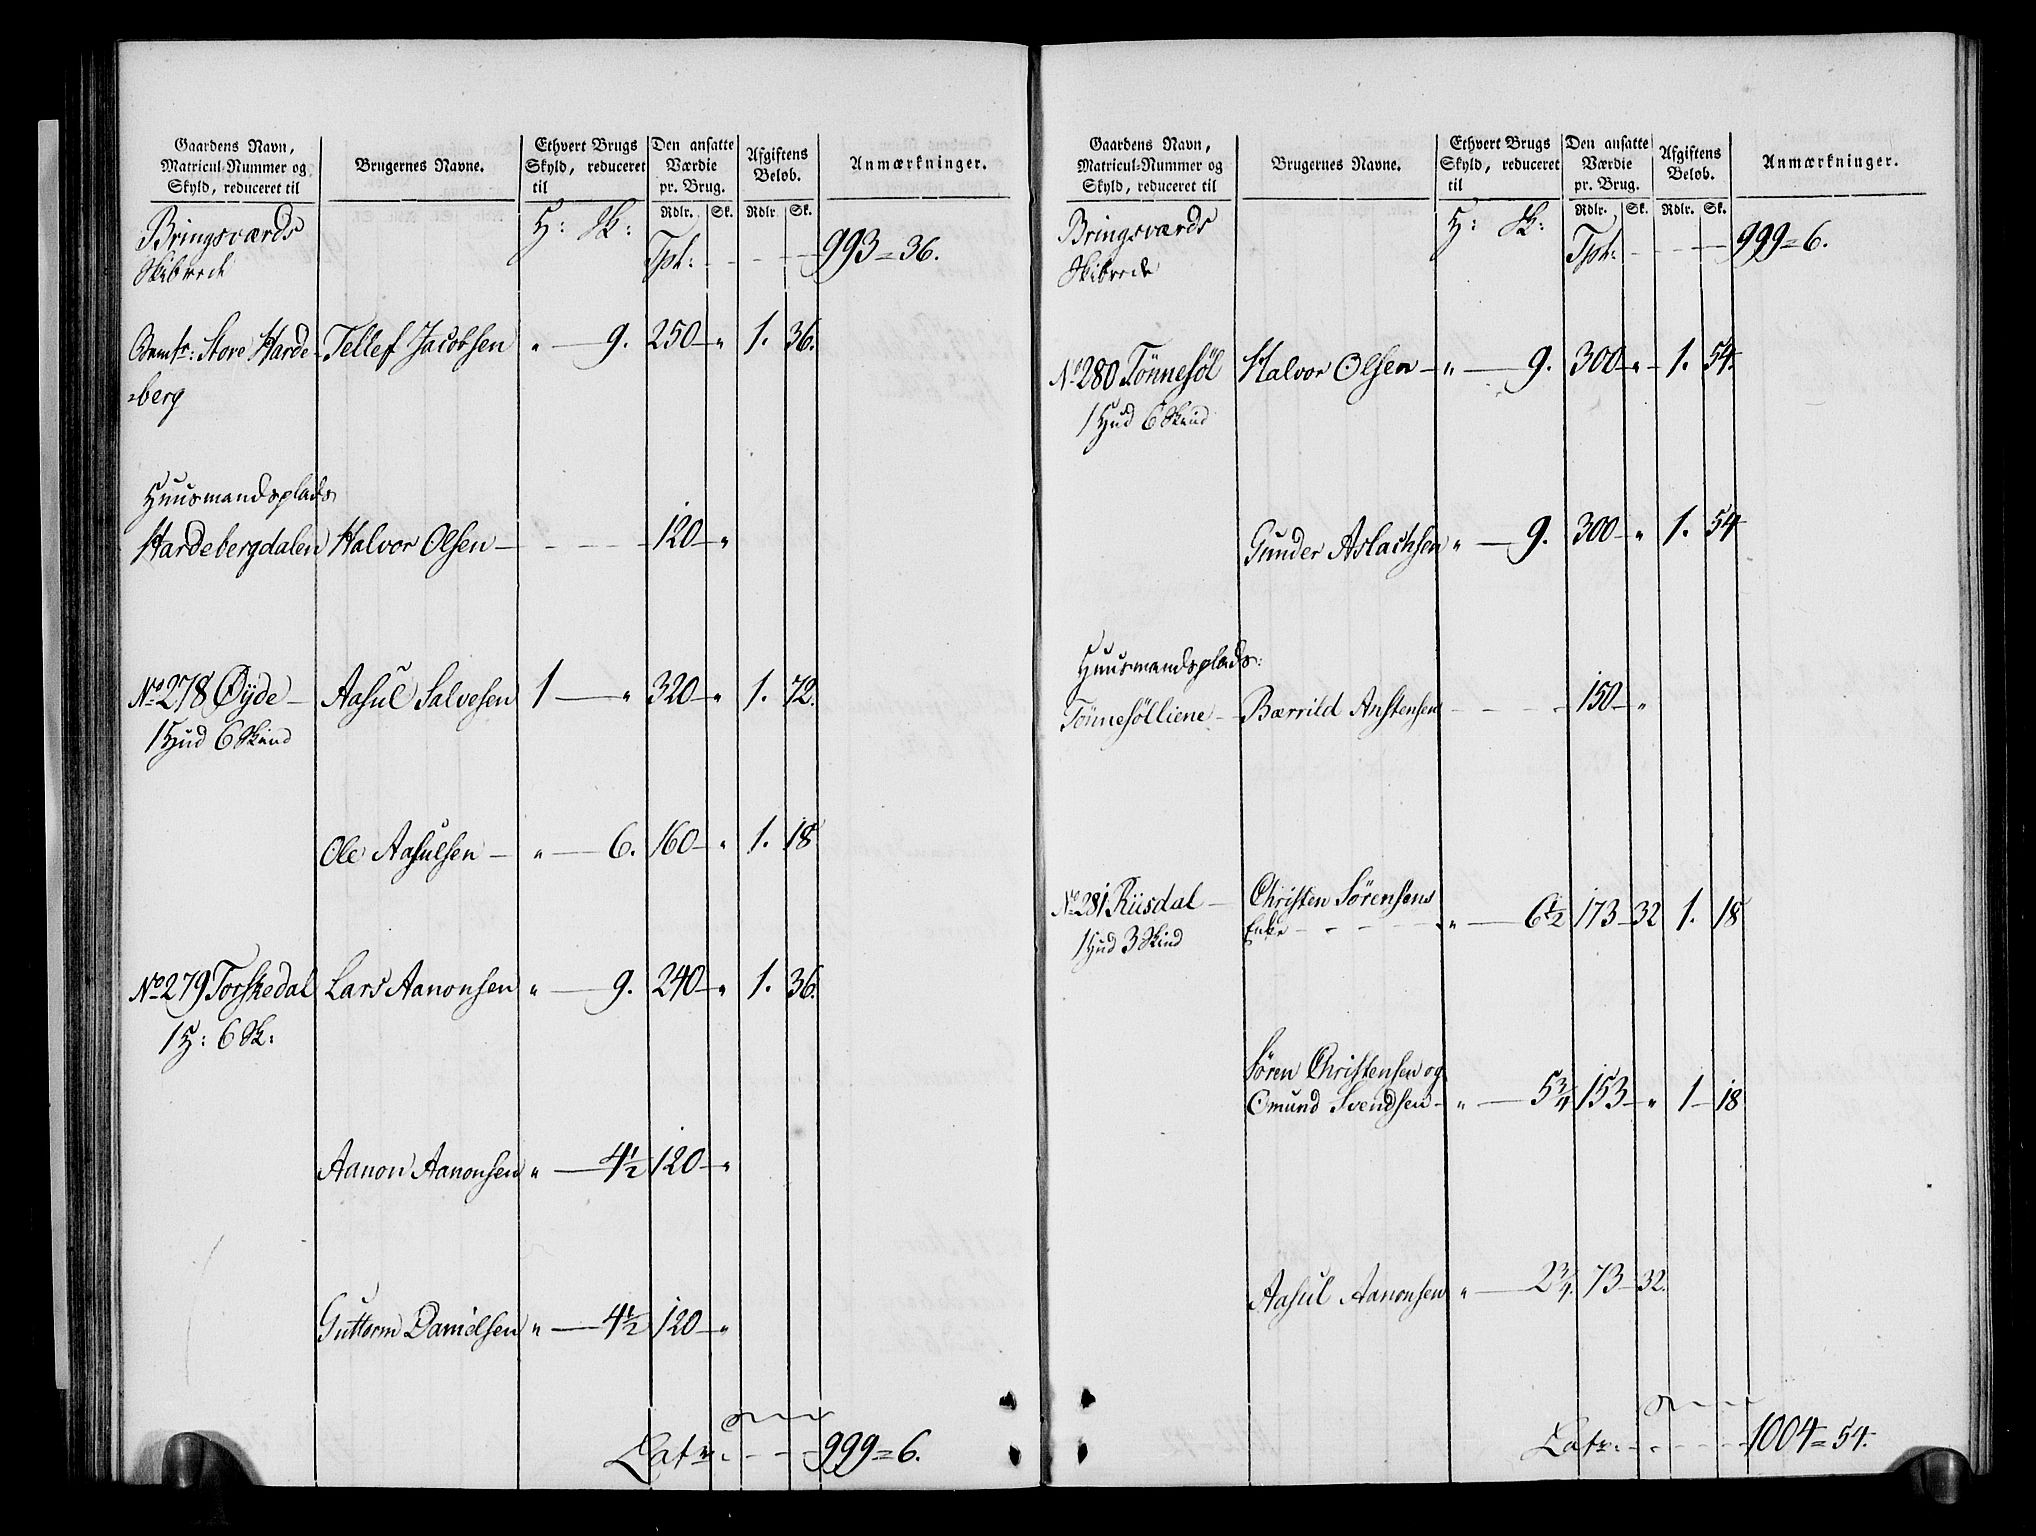 Gaardens Navn,
Matricul-Nummer og
Skyld, reduceret til
Brugernes Navne.
Ethvert Brugs
Skyld, reduceret
til
Den ansatte
Værdie
pr. Brug.
Afgiftens
Beløb.
Anmærkninger.
Rdlr. Sk. Rdlr. Sk.
Bringsværds H: Sk:
Skibrede Tpt: 993 = 36.
Store Harde- Tellef Jacobsen " 9. 250 " 1. 36.
=berg
Huusmandsplads
Hardebergdalen Halvor Olsen 120 "
No 278 Øyde Aasul Salvesen 1 " 320 " 1. 72.
1 Hud 6 Skind
Ole Aasulsen " 6. 160 " 1. 18
No 279 Torskedal Lars Aanonsen " 9. 240 " 1. 36.
1 H: 6 Sk:
Aanon Aanonsen " 4½ 120 "
Guttorm Danielsen " 4½ 120 "
Latr: 999 = 6.
Gaardens Navn,
Matricul-Nummer og
Skyld, reduceret til
Brugernes Navne.
Ethvert Brugs
Skyld, reduceret
til
Den ansatte
Værdie
pr. Brug.
Afgiftens
Beløb.
Anmærkninger.
Rdlr. Sk. Rdlr. Sk.
Bringsværds H: Sk:
Skibrede Tpt: 999 = 6.
No 280 Tönnesöl Halvor Olsen " 9. 300 " 1. 54.
1 Hud 6 Skind
Gunder Aslachsen " 9. 300 " 1. 54
Huusmandsplads:
Tönnesölliene Bærrild Anstensen 150 "
No 281 Riisdal Christen Sørensens
Enke " 6½ 173 32 1. 18
1 Hud 3 Skind
Søren Christensen og
Omund Svendsen " 5¾ 153 " 1 18
Aasul Aanonsen " 2¾. 73 32.
Latr: 1004 = 54.